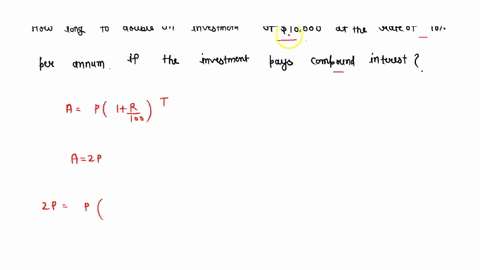 How long to double an investment of $10,000 at the rate of 10%
per annum if the investment pays compound interest?
A = P ( 1 + R/100 ) T
A = 2P
2P = P (